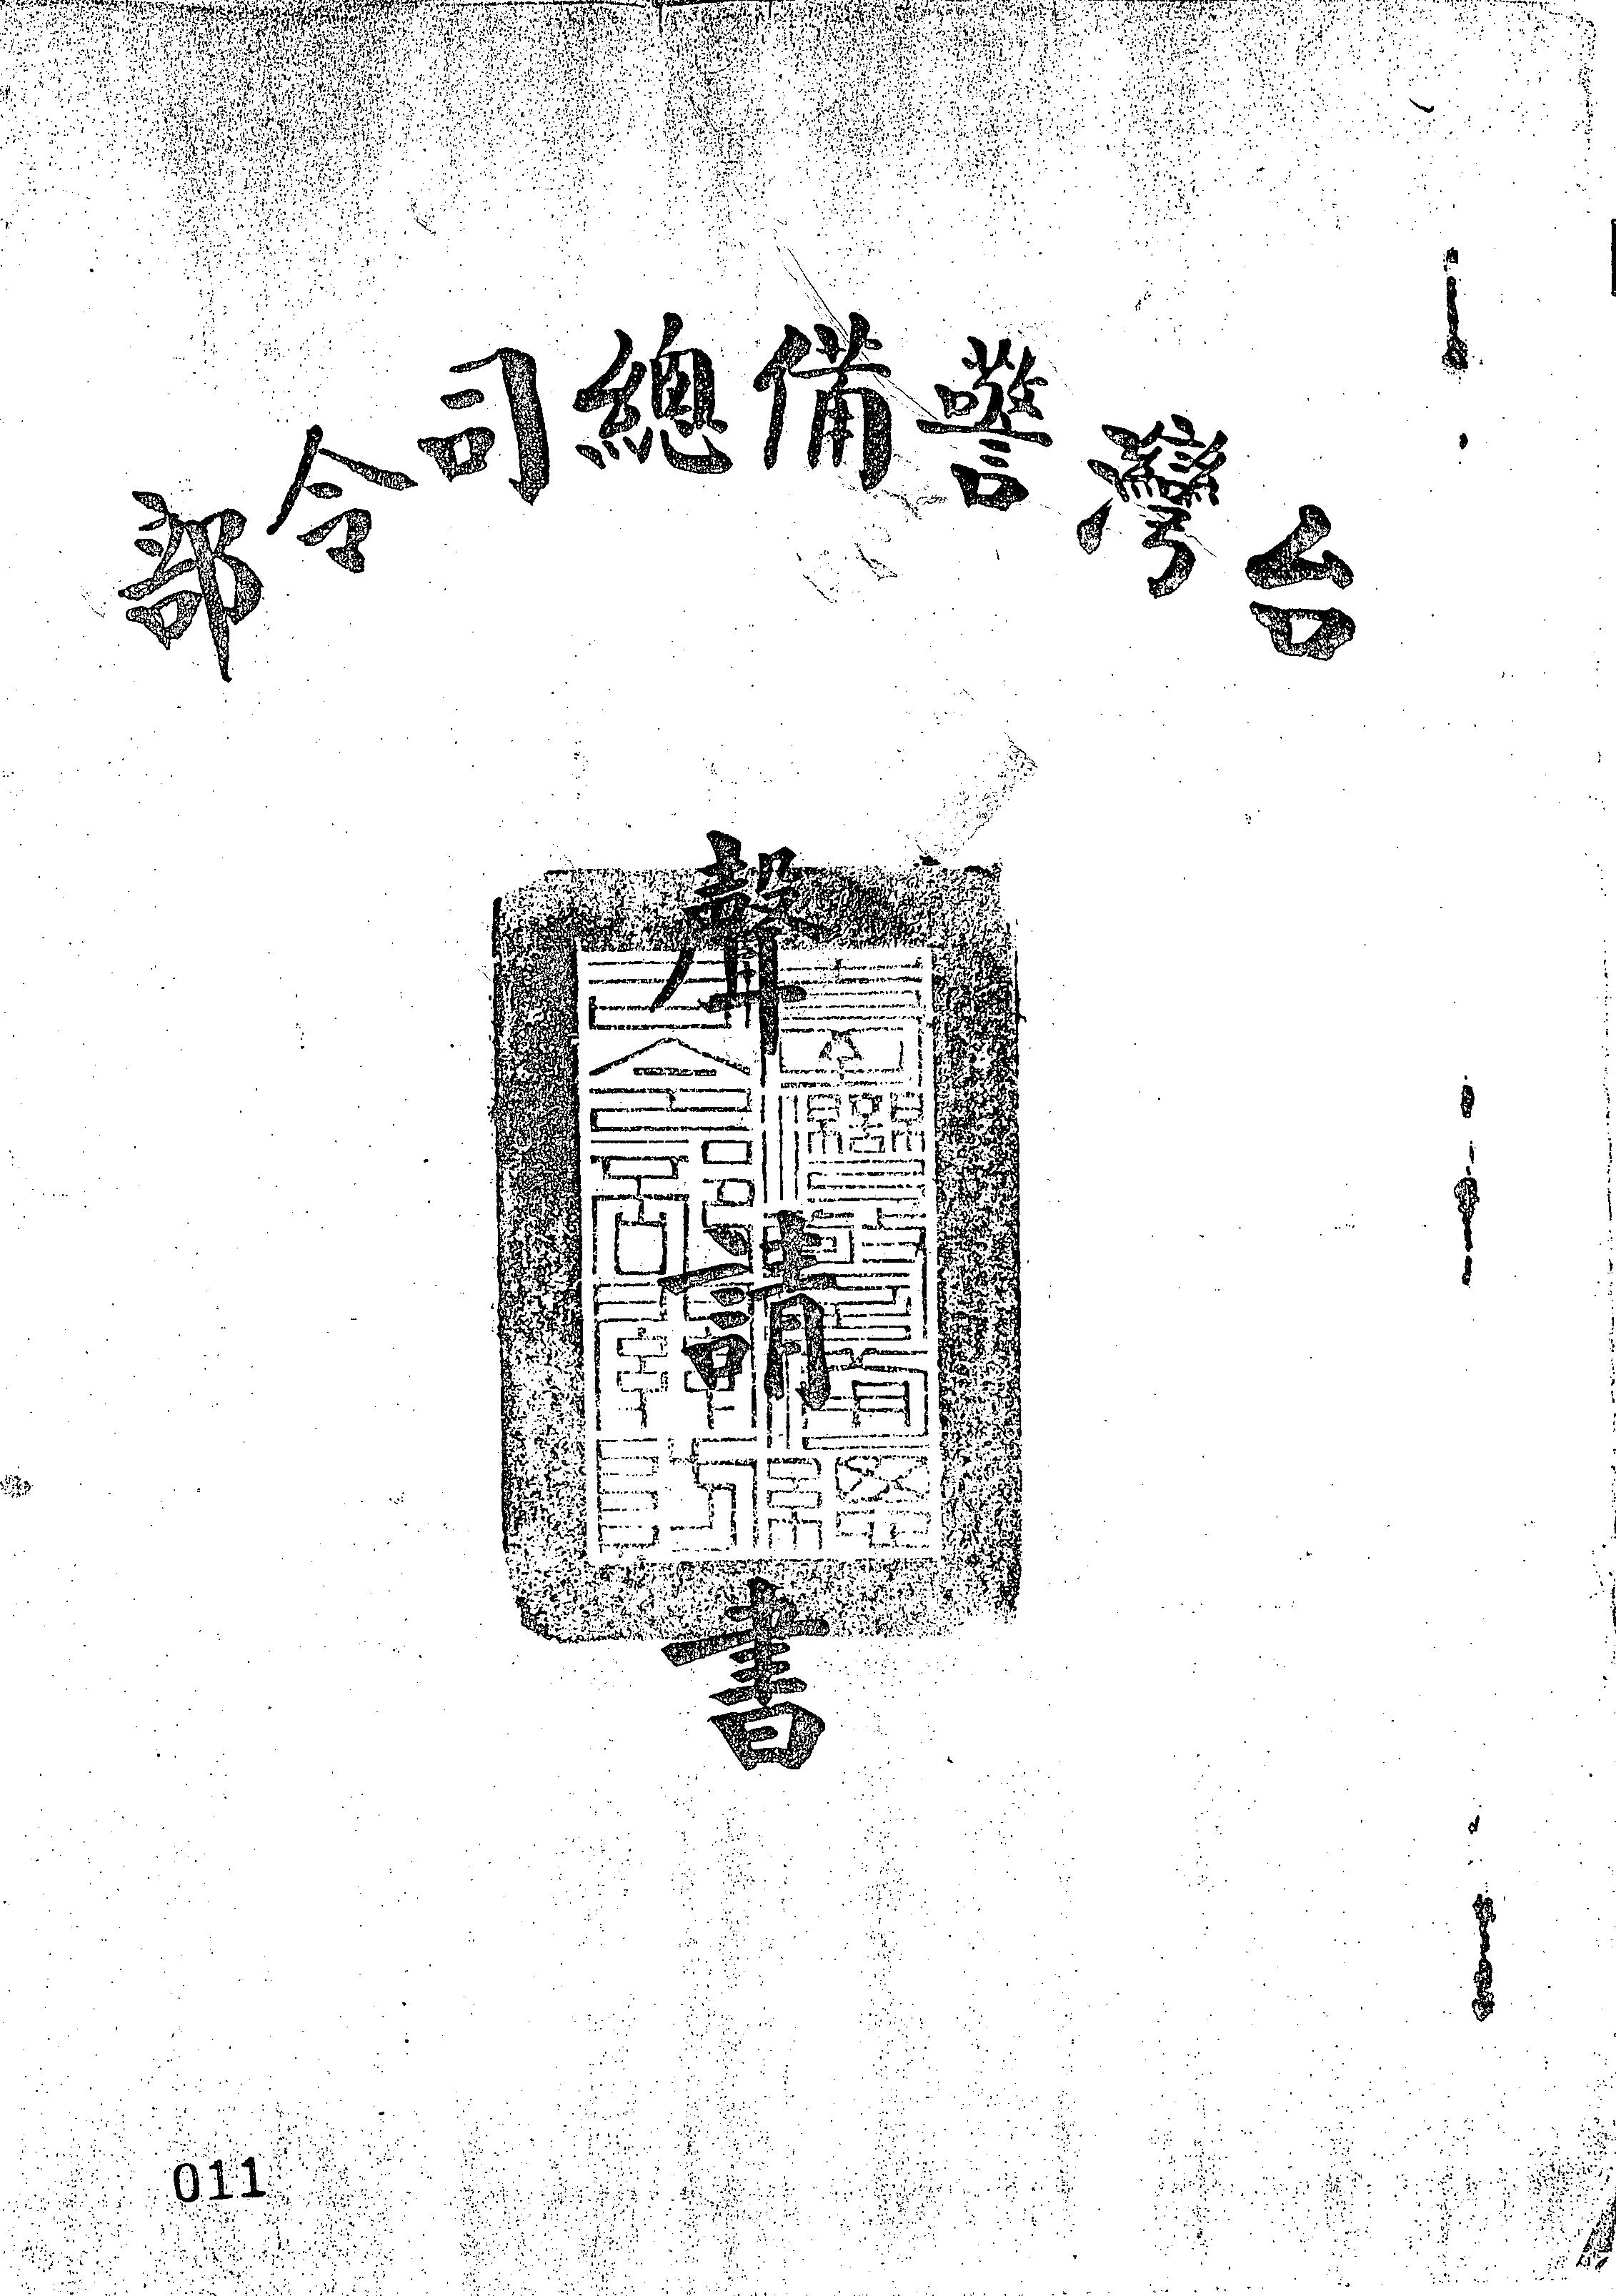 台灣警備總司令部
聲請書
011